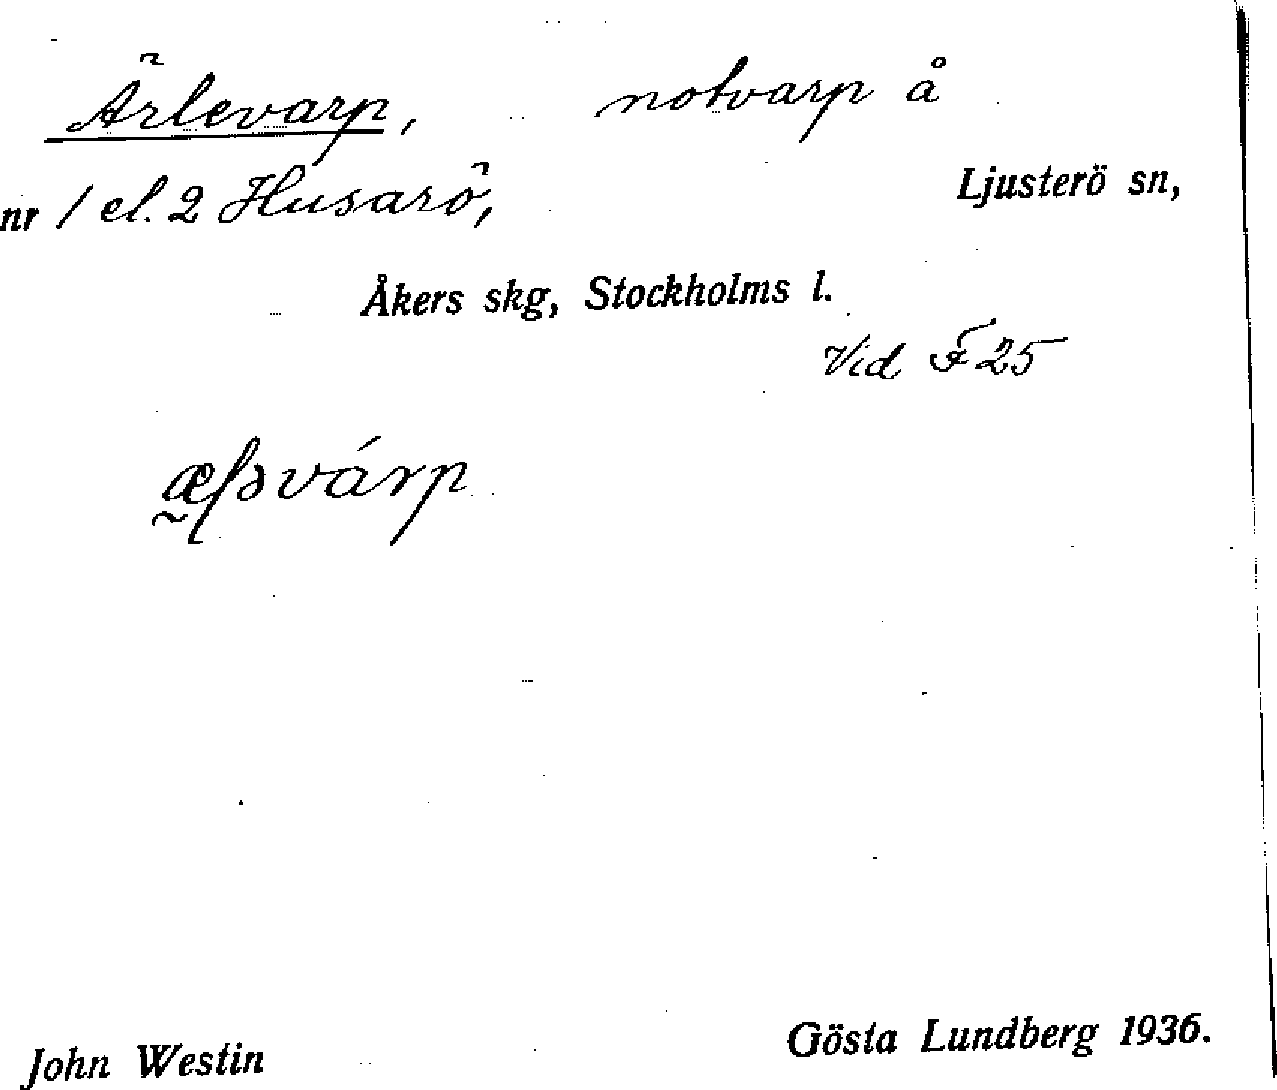 Ärlevarp, notvarp å
nr 1 el. 2 Husarö, Ljusterö sn,
Åkers skg, Stockholms l.
Vid F 25
John Westin
Gösta Lundberg 1936.